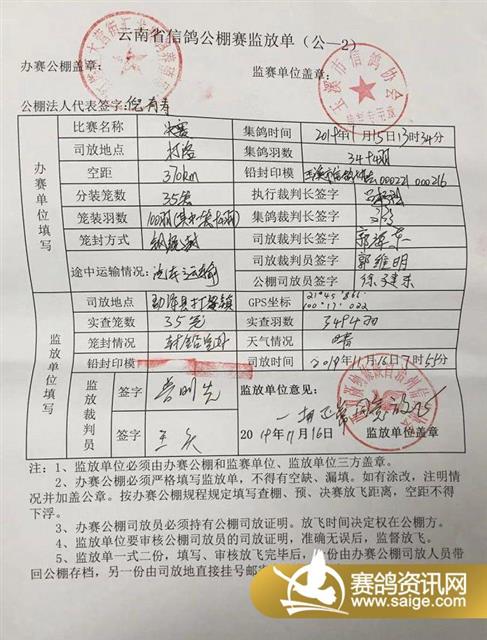 云南省信鸽公棚赛监放单（公—2）
办赛公棚盖章： 监赛单位盖章：
玉溪市信鸽协会
公棚法人代表签字：倪有寿
办赛单位填写
比赛名称 决赛 集鸽时间 2019年11月15日13时34分
司放地点 打洛 集鸽羽数 3494羽
空距 370km 铅封印模 000221 000216
分装笼数 35笼 执行裁判长签字
笼装羽数 100羽 集鸽裁判长签字
笼封方式 司放裁判长签字
途中运输情况：汽车运输 司放裁判员签字 郭维明
公棚司放员签字 徐建东
监放单位填写
司放地点 勐海县打洛镇 GPS坐标 21°45′866″ 100°17′022
实查笼数 35笼 实查羽数 3494羽
笼封情况 封铅完好 天气情况 晴
铅封印模 司放时间 2019年11月16日7时51分
监放裁判员
签字 监放单位意见：
一切正常同意放飞
签字 2019年11月16日 监放单位盖章
注：1、监放单位必须由办赛公棚和监赛单位、监放单位三方盖章。
2、办赛公棚必须严格填写监放单，不得有空缺、漏填。如有涂改，注明情
况并加盖公章。按办赛公棚规程规定填写查棚、预、决赛放飞距离，空距不得
下浮。
3、办赛公棚司放员必须持有公棚司放证明。放飞时间决定权在公棚方。
4、监放单位要审核公棚司放员的司放证明，准确无误后，监督放飞。
5、监放单一式二份，填写、审核放飞完毕后，一份由办赛公棚司放人员带
回公棚存档，另一份由司放地直接挂号邮寄
赛鸽资讯网
www.saige.com